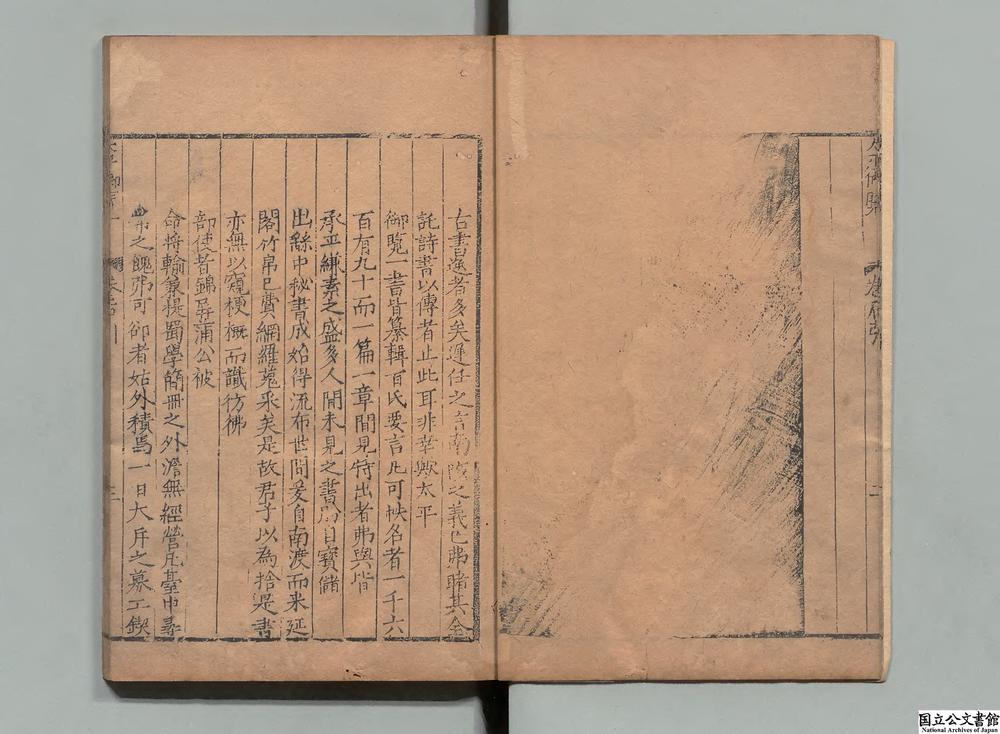 古書逸者多矣遲任之言南陔之義已弗睹其全
託詩書以傳者止此耳非幸歟太平
御覽一書皆纂輯百氏要言凡可帙名者一千六
百有九十而一篇一章間見特出者弗與偕
承平縑素之盛多人間未見之書 日寶儲
出繇中秘書成始得流布世間爰自南渡而来延
閣竹帛已費網羅蒐釆矣是故君子以為捨是書
亦無以窺梗槩而識彷彿
部使者錦屏蒲公被
命將輸兼提蜀學簡冊之外澹無經營凡臺中
之餽弗可卻者姑外積焉一日大斥之募工鍥
三
国立公文書館
National Archives of Japan